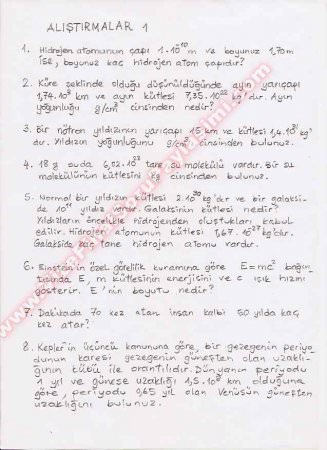 ALIŞTIRMALAR 1
1. Hidrojen atomunun çapı 1·10⁻¹⁰ m ve boyunuz 1,70m
ise, boyunuz kaç hidrojen atom çapıdır?
2. Küre şeklinde olduğu düşünüldüğünde ayın yarıçapı
1,74·10⁶ m ve ayın kütlesi 7,35·10²² kg'dır. Ayın
yoğunluğu g/cm³ cinsinden nedir?
3. Bir nötron yıldızının yarıçapı 15 km ve kütlesi kg'
dır. Yıldızın yoğunluğunu g/cm³ cinsinden bulunuz.
4. 18 g suda 6,02·10²³ tane su molekülü vardır. Bir su
molekülünün kütlesini kg cinsinden bulunuz.
5. Normal bir yıldızın kütlesi 2·10³⁰ kg'dır ve bir galaksi-
de yıldız vardır. Galaksinin kütlesi nedir?
Yıldızların öncelikle hidrojenden oluştukları kabul
edilir. Hidrojen atomunun kütlesi 1,67·10⁻²⁷ kg'dır.
Galakside kaç tane hidrojen atomu vardır.
6. Einstein'in özel görelilik kuramına göre E=mc² bağın-
tısında E, m kütlesinin enerjisini ve c ışık hızını
gösterir. E'nin boyutu nedir?
7. Dakikada 70 kez atan insan kalbi 50 yılda kaç
kez atar?
8. Kepler'in üçüncü kanununa göre, bir gezegenin periyo-
dunun karesi gezegenin güneşten olan uzaklı-
ğının kübü ile orantılıdır. Dünyanın periyodu
1 yıl ve güneşe uzaklığı 1,5·10⁸ km olduğuna
göre, periyodu 0,65 yıl olan Venüsün güneşten
uzaklığını bulunuz.